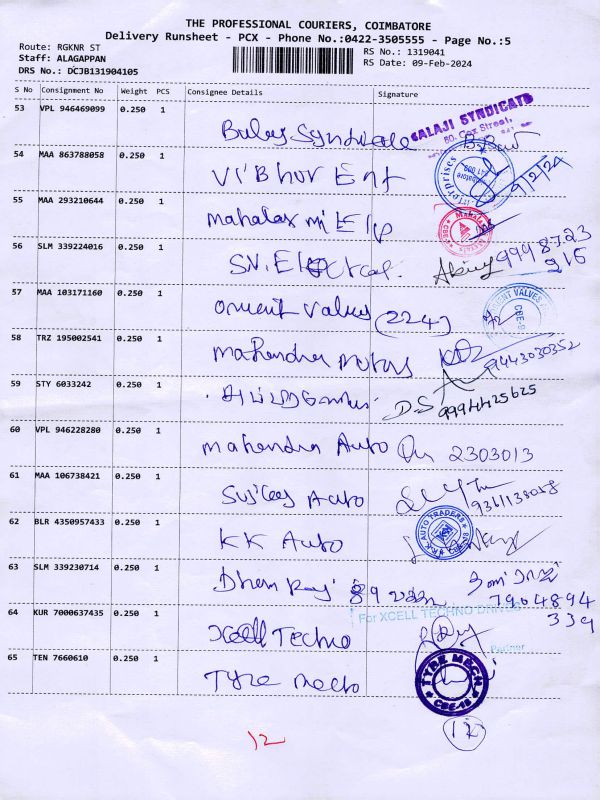 THE PROFESSIONAL COURIERS, COIMBATORE
Delivery Runsheet - PCX - Phone No.:0422-3505555 - Page No.:5
Route: RGKNR ST
RS No.: 1319041
Staff: ALAGAPPAN
RS Date: 09-Feb-2024
DRS No.: DCJB131904105
S No Consignment No Weight PCS Consignee Details Signature
53 VPL 946469099 0.250 1
BALAJI SYNDICATE
80, Cox Street,
54 MAA 863788058 0.250 1 Vibhur Ent
9/2/24
55 MAA 293210644 0.250 1 Mahalaxmi E/p
56 SLM 339224016 0.250 1 S.V. Electrical.
57 MAA 103171160 0.250 1 Orient Values (224)
58 TRZ 195002541 0.250 1 Mahendra Motors
9443030352
59 STY 6033242 0.250 1
D.S 9994425625
60 VPL 946228280 0.250 1 Mahendra Auto 2303013
61 MAA 106738421 0.250 1 Auto
62 BLR 4350957433 0.250 1 KK Auto
K.K AUTO TRADERS
63 SLM 339230714 0.250 1
7904894
339
For XCELL TECHNO DRIVES
64 KUR 7000637435 0.250 1 Xcell Techno
Partner
65 TEN 7660610 0.250 1 Tyre Mech
TYRE MECH
CBE-18
12
12